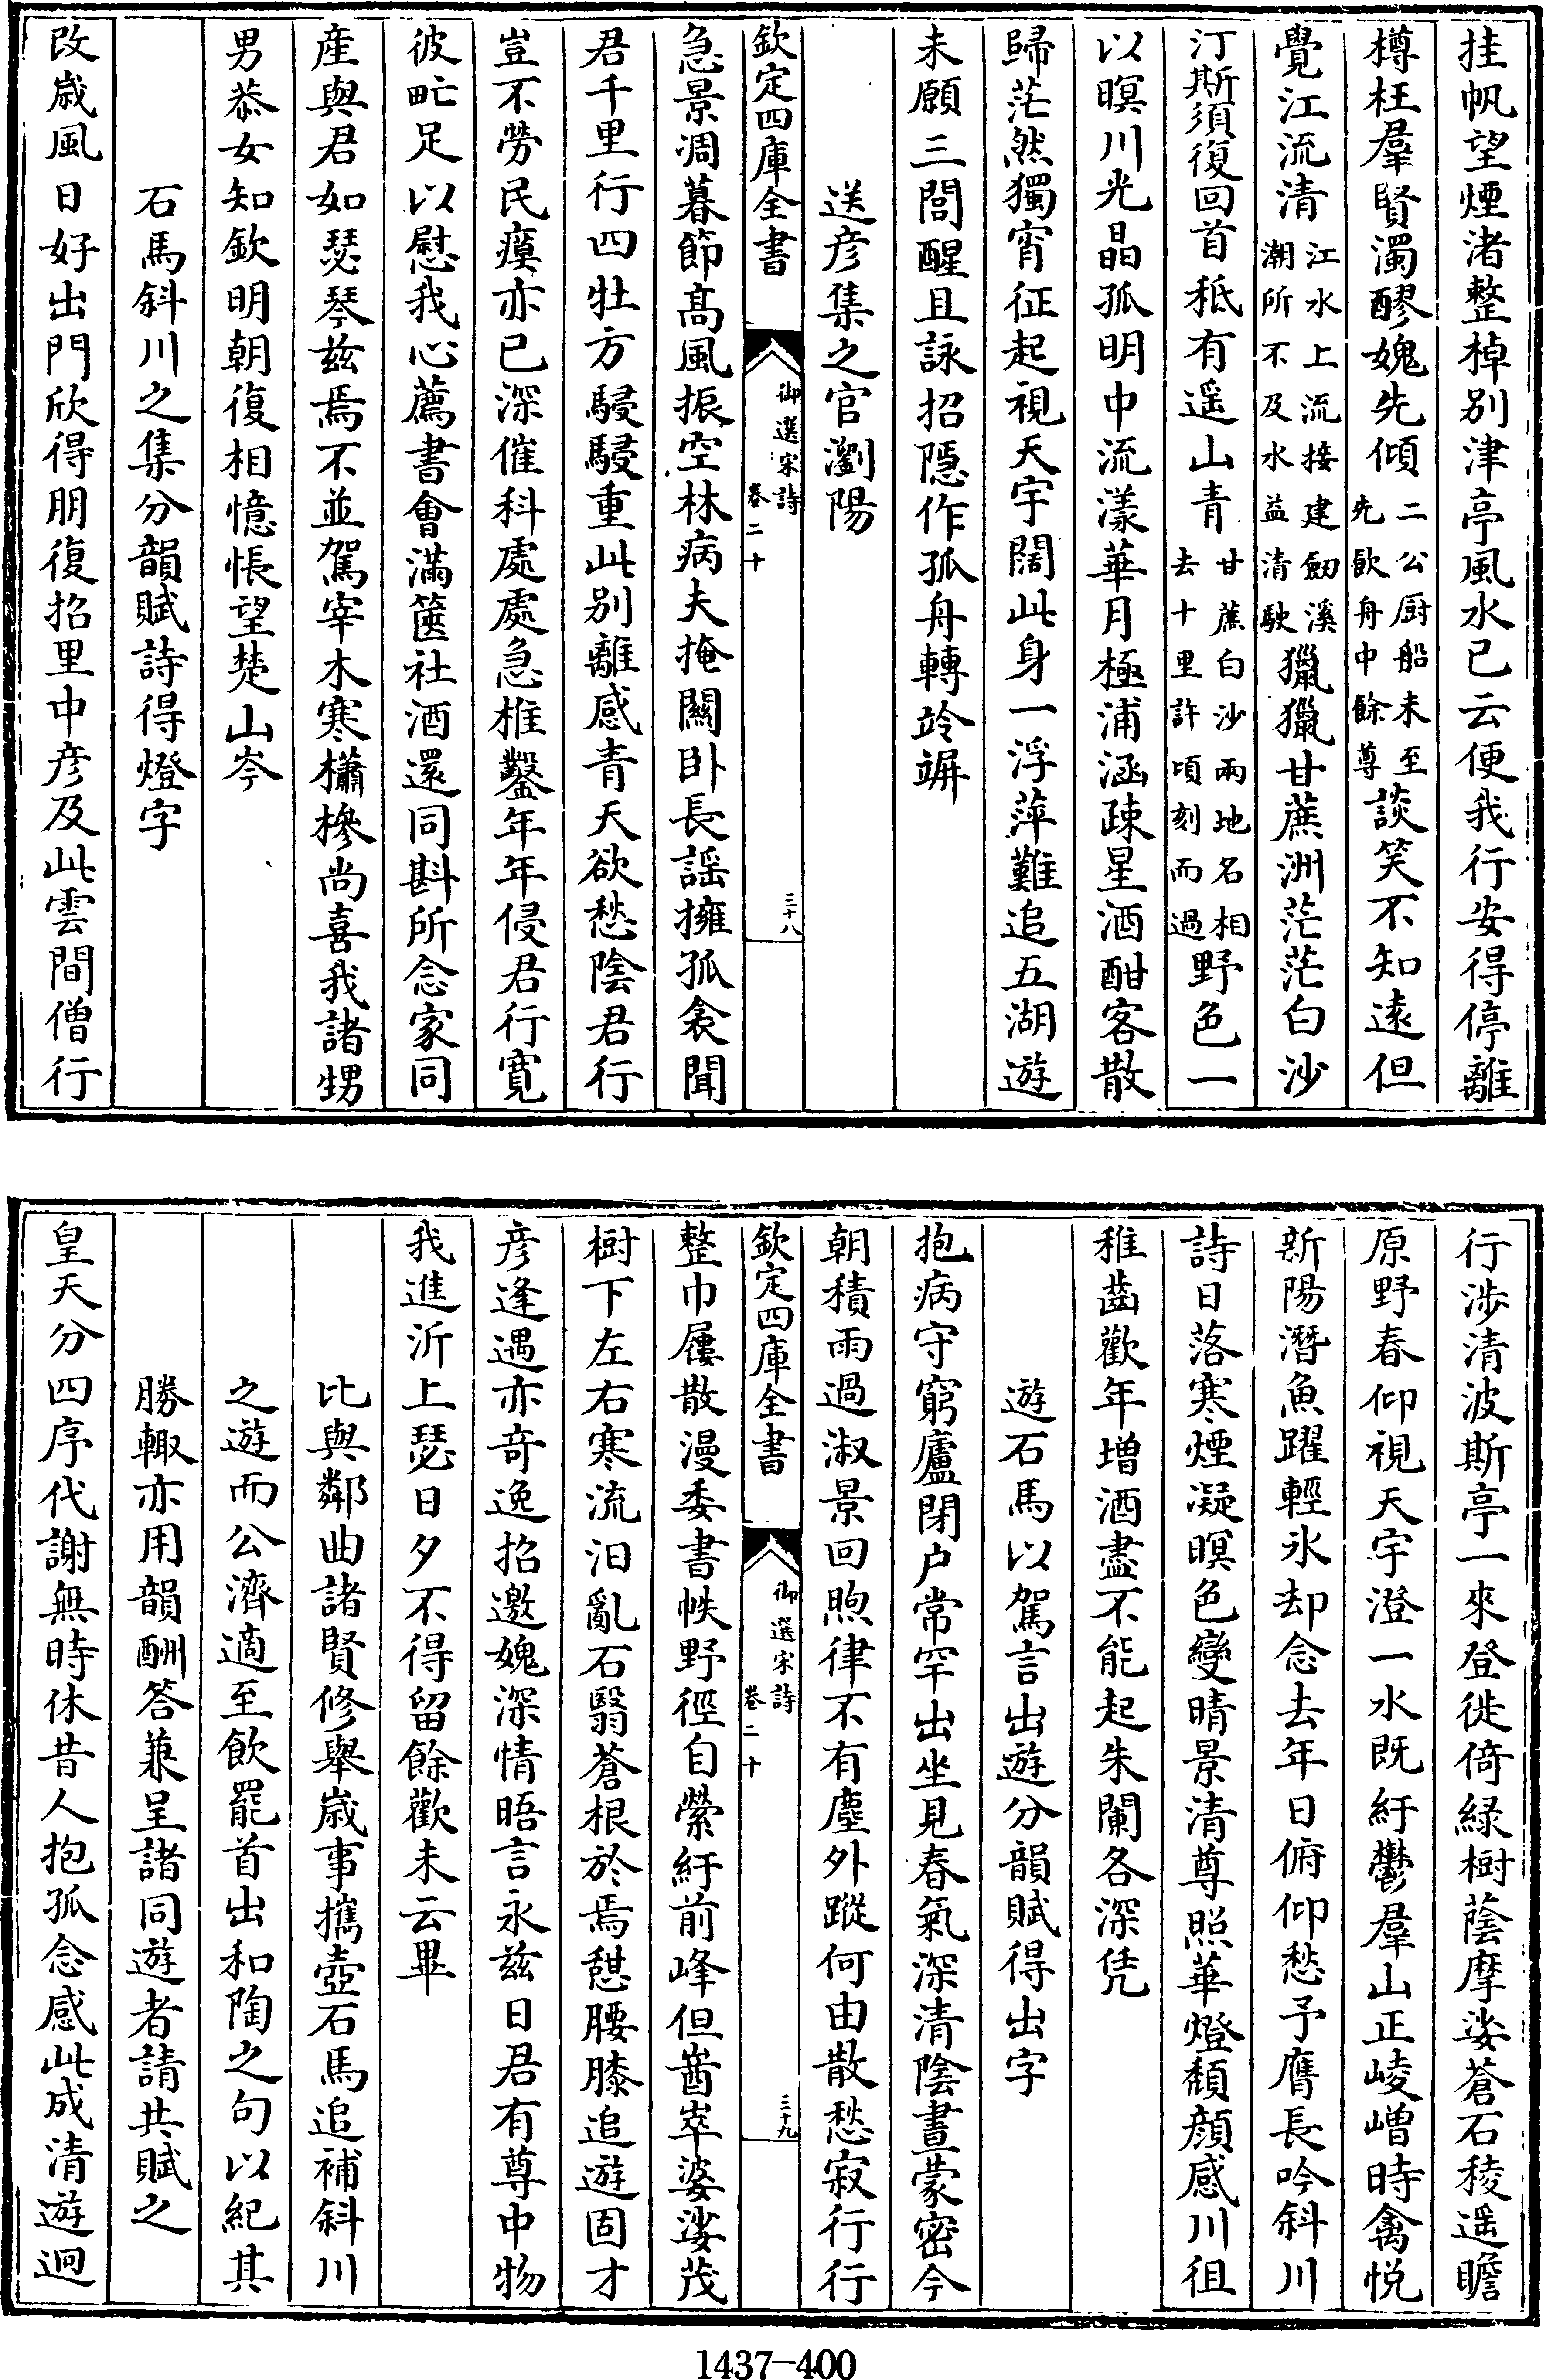 挂帆望煙渚整棹别津亭風水已云便我行安得停離
樽枉羣賢濁醪媿先傾二公厨船未至先飲舟中餘尊談笑不知遠但
覺江流清江水上流接建劒溪潮所不及水益清駛獵獵甘蔗洲茫茫白沙
汀斯須復回首秪有遥山青甘蔗白沙兩地名相去十里許頃刻而過野色一
以暝川光晶孤明中流漾華月極浦涵疎星酒酣客散
歸茫然獨宵征起視天宇闊此身一浮萍難追五湖遊
未願三閭醒且詠招隠作孤舟轉竛竮
送彦集之官瀏陽
欽定四庫全書
御選宋詩
卷二十
三十八
急景凋暮節髙風振空林病夫掩關卧長謡擁孤衾聞
君千里行四牡方駸駸重此别離感青天欲愁陰君行
豈不勞民瘼亦已深催科處處急椎鑿年年侵君行寛
彼甿足以慰我心薦書會滿篋社酒還同斟所念家同
産與君如瑟琴兹焉不並駕宰木寒櫹槮尚喜我諸甥
男恭女知欽明朝復相憶悵望楚山岑
石馬斜川之集分韻賦詩得燈字
改嵗風日好出門欣得朋復招里中彦及此雲間僧行
行涉清波斯亭一來登徙倚緑樹蔭摩挲蒼石稜遥瞻
原野春仰視天宇澄一水既紆鬱羣山正崚嶒時禽悦
新陽潛魚躍輕氷却念去年日俯仰愁予膺長吟斜川
詩日落寒煙凝暝色變晴景清尊照華燈頽顔感川徂
稚齒歡年增酒盡不能起朱闌各深凭
遊石馬以駕言出遊分韻賦得出字
抱病守窮廬閉户常罕出坐見春氣深清陰晝蒙密今
朝積雨過淑景回煦律不有塵外蹤何由散愁寂行行
欽定四庫全書
御選宋詩
卷二十
三十九
整巾屨散漫委書帙野徑自縈紆前峰但崷崒婆娑茂
樹下左右寒流汨亂石翳蒼根於焉憇腰膝追遊固才
彦逢遇亦奇逸招邀媿深情晤言永兹日君有尊中物
我進沂上瑟日夕不得留餘歡未云畢
比與鄰曲諸賢修舉嵗事攜壺石馬追補斜川
之遊而公濟適至飲罷首出和陶之句以紀其
勝輙亦用韻酬答兼呈諸同遊者請共賦之
皇天分四序代謝無時休昔人抱孤念感此成清遊迥
1437-400